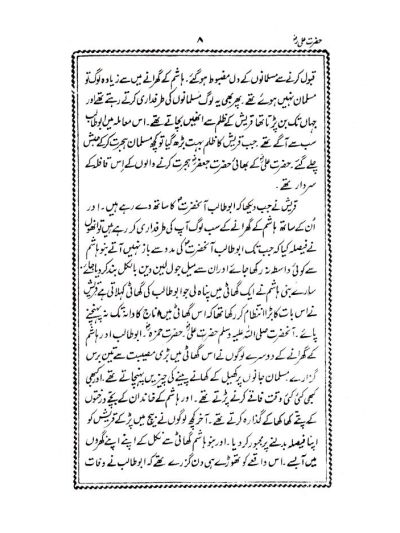 حضرت علیؓ
۸
قبول کرنے سے مسلمانوں کے دل مضبوط ہو گئے۔ ہاشم کے گھرانے میں سے زیادہ لوگ تو
مسلمان نہیں ہوئے تھے پھر بھی یہ لوگ مسلمانوں کی طرفداری کرتے رہتے تھے اور
جہاں تک بن پڑتا تھا قریش کے ظلم سے انھیں بچاتے تھے۔ اس معاملہ میں ابوطالب
سب سے آگے تھے جب قریش کا ظلم بہت بڑھ گیا تو کچھ مسلمان ہجرت کر کے حبش
چلے گئے۔ حضرت علیؓ کے بھائی حضرت جعفرؓ ہجرت کرنے والوں کے اس قافلہ کے
سردار تھے۔
قریش نے جب دیکھا کہ ابوطالب آنحضرتؐ کا ساتھ دے رہے ہیں۔ اور
اُن کے ساتھ ہاشم کے گھرانے کے سب لوگ آپ کی طرفداری کر رہے ہیں تو انھوں
نے فیصلہ کیا کہ جب تک ابوطالب آنحضرتؐ کی مدد سے باز نہیں آتے بنو ہاشم
سے کوئی واسطہ نہ رکھا جائے اور ان سے میل جول لین دین بالکل بند کر دیا جائے۔
سارے بنی ہاشم نے ایک گھاٹی میں پناہ لی جو ابوطالب کی گھاٹی کہلاتی ہے قریش
نے اس بات کا بڑا انتظام کر رکھا تھا کہ اس گھاٹی میں اناج کا دانہ تک نہ پہنچنے
پائے۔ آنحضرت صلی اللہ علیہ وسلم حضرت علیؓ۔ حضرت حمزہؓ۔ ابوطالب اور ہاشم
کے گھرانے کے دوسرے لوگوں نے اس گھاٹی میں بڑی مصیبت سے تین برس
گزارے۔ مسلمان جانوں پر کھیل کے کھانے پینے کی چیزیں پہنچاتے تھے۔ اور کبھی
کبھی کئی کئی وقت فاقے کرنے پڑتے تھے۔ اور ہاشم کے خاندان کے بچے درختوں
کے پتے کھا کھا کے گذارہ کرتے تھے۔ آخر کچھ لوگوں نے بیچ میں پڑ کے قریش کو
اپنا فیصلہ بدلنے پر مجبور کر دیا۔ اور بنو ہاشم گھاٹی سے نکل کے اپنے اپنے گھروں
میں آبسے۔ اس واقعے کو تھوڑے ہی دن گزرے تھے کہ ابوطالب نے وفات